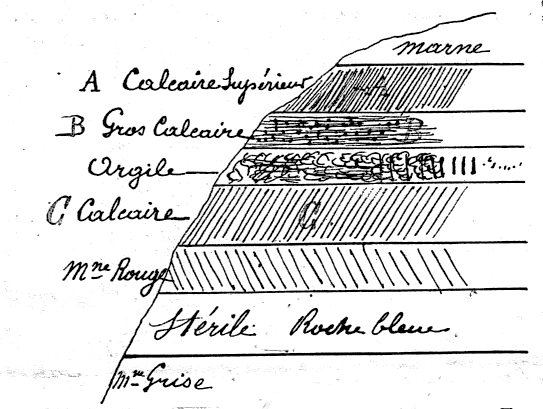 marne
A Calcaire Supérieur
A
B Gros Calcaire
B
Argile
C Calcaire
C
Mne Rouge
Stérile Roche bleue
Mne Grise